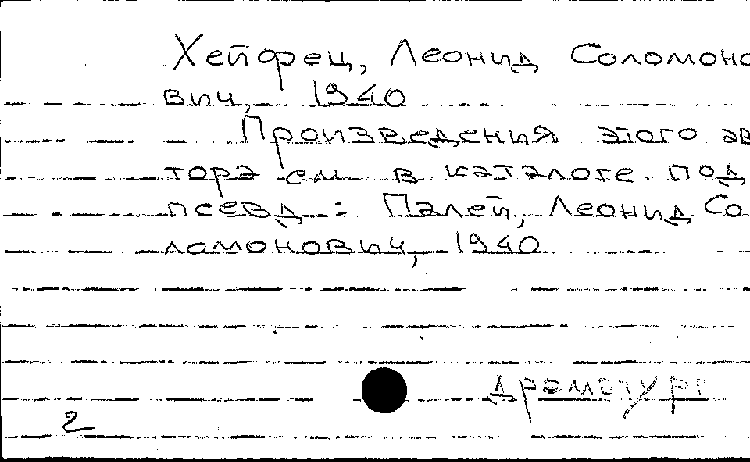 Хейфец, Леонид Соломоно
вич, 1940
Произведения этого ав
тора см в каталоге под
псевд: Палей, Леонид Со
ломонович, 1940
драматург
2